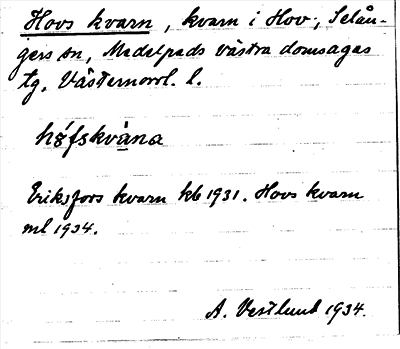 Hovs kvarn, kvarn i Hov, Selån-
gers sn, Medelpads västra domsagas
tg, Västernorrl. l.
hǿfskvàna
Eriksfors kvarn kb 1931. Hovs kvarn
ml 1934.
A. Vestlund 1934.